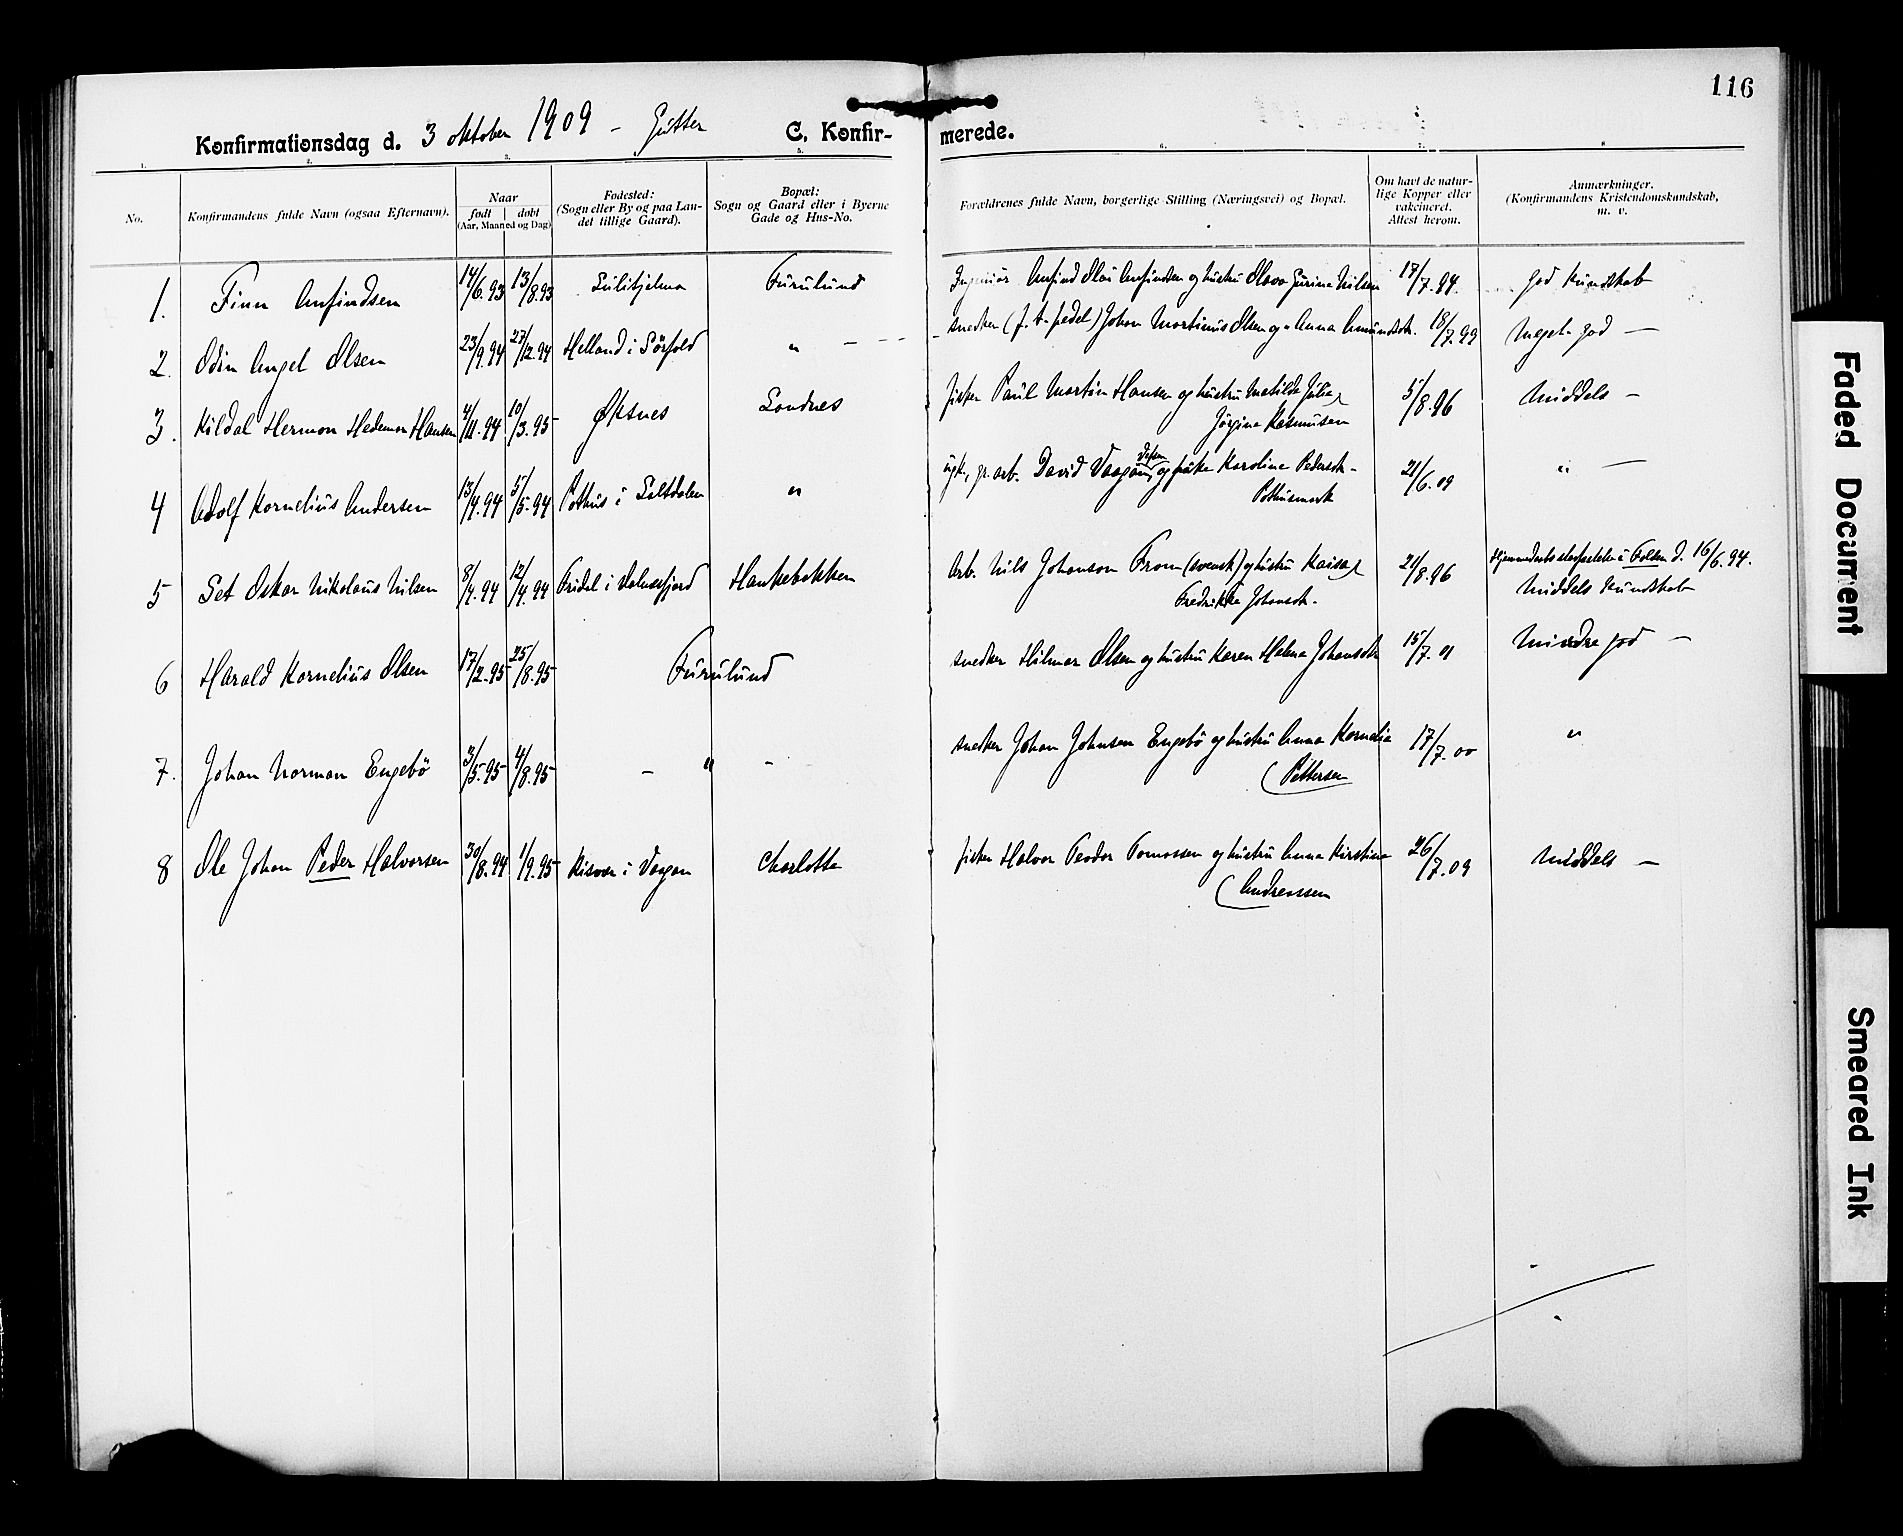 116
Konfirmationsdag d. 3 oktober 1909 – Gutter C. Konfir- merede.
1. 2. 3. 5. 6. 7. 8
No.
Konfirmandens fulde Navn (ogsaa Efternavn).
Naar
født døbt
(Aar, Maaned og Dag)
Fødested:
(Sogn eller By og paa Lan-
det tillige Gaard).
Bopæl:
Sogn og Gaard eller i Byerne
Gade og Hus-No.
Forældrenes fulde Navn, borgerlige Stilling (Næringsvei) og Bopæl.
Om havt de natur-
lige Kopper eller
vakcineret.
Attest herom.
Anmærkninger.
(Konfirmandens Kristendomskundskab,
m. v.
1. Finn Anfindsen 14/6.93 13/8.93 Sulitjelma Furulund Ingeniør Anfind Olai Anfindsen og hustru Olava Gurine Nilsen 17/7.94. god Kundskab
2. Odin Angel Olsen 23/9.94 27/12.94 Helland i Sörfold " – - - - snedker (f. t. pedel) Johan Martinus Olsen og " Anna Amundsdtr. 18/7.99 Meget god —
3. Kildal Hermon Hedemon Hansen 4/11.94 10/3.95 Øksnes Sandnes fisker Paul Martin Hansen og hustru Matilde Julie
Jörgine Rasmussen 5/8.96 Middels –
4 Adolf Kornelius Andersen 13/4.94 5/5.94 Pothus i Saltdalen " ugk., gr.arb. David og pike Karoline Pedersdtr. –
Pothusmark 21/6.09 " —
5 Set Oskar Nikolaus Nilsen 8/4.94 12/4.94 Hankebakken Arb. Nils Johanson From (svensk) og hustru Kaisa
Fredrikke Johansdtr. 21/8.96 Hjemmedøbt i Folden d. 16/6.94.
Middels Kundskab
6 Harald Kornelius Olsen 17/2.95 25/8.95 Furulund snedker Hilmar Olsen og hustru Karen Helena Johansdtr 15/7.01 Mindre god –
7. Johan Norman Engebö 3/5.95 4/8.95 – " – snedker Johan Johnsen Engebö og hustru Anna Kornelia
(Pettersen 17/7.00 "
8 Ole Johan Peder Halvorsen 30/8.94 1/9.95 Risvær i Vaagan Charlotta fisker Halvor Teodor Tomassen og hustru Anna Kirstine
(Andreassen 26/7.09 Middels –
Faded Document
Smeared Ink